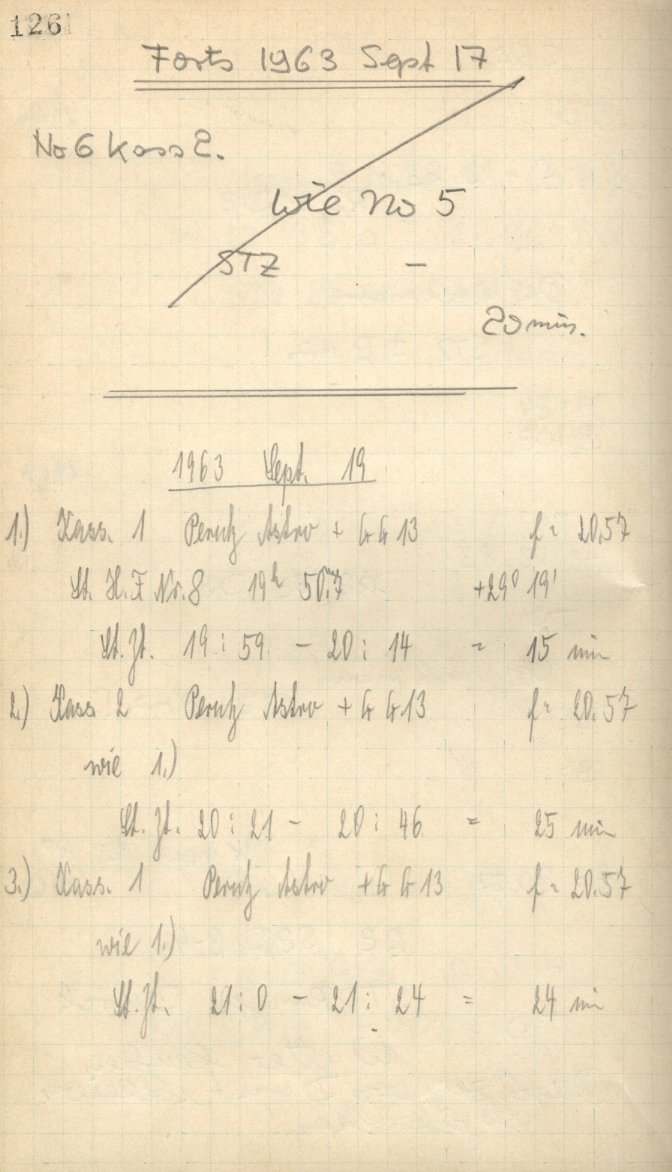 126
Forts 1963 Sept 17
No 6 Kass 2.
wie No 5
STZ –
20 min.
1963 Sept. 19
1.) Kass. 1 Perutz Astro + G G 13 f = 20.57
St. H. F Nr. 8 19h 50m.7 +29° 19'
St. Zt. 19 : 59 – 20 : 14 = 15 min
2.) Kass 2 Perutz Astro + G G 13 f = 20.57
wie 1.)
St. Zt. 20 : 21 – 20 : 46 = 25 min
3.) Kass. 1 Perutz Astro + G G 13 f = 20.57
wie 1.)
St. Zt. 21 : 0 – 21 : 24 = 24 min